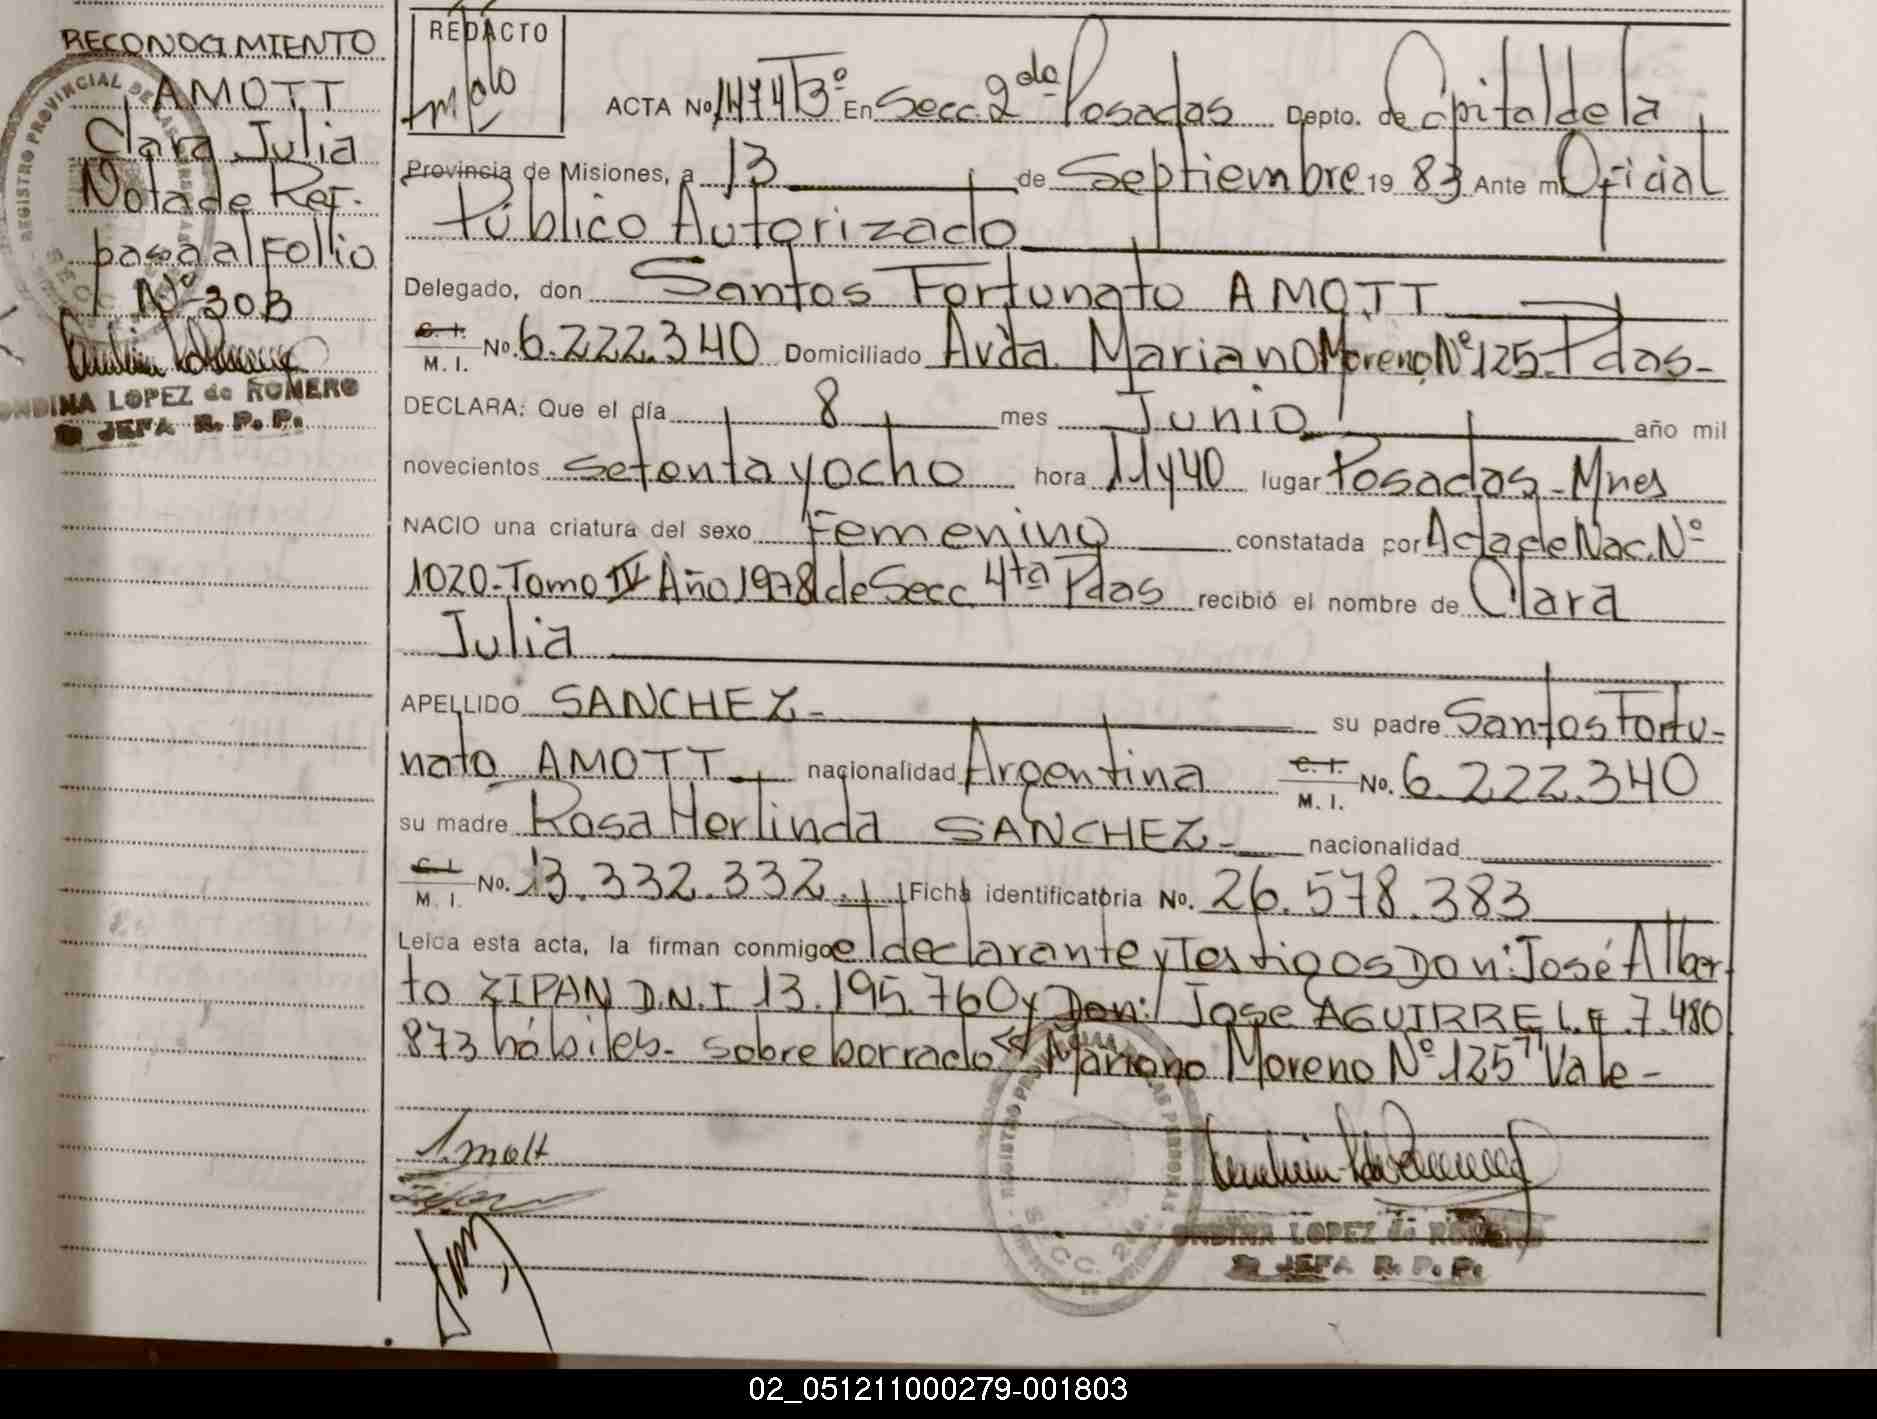 RECONOCIMIENTO
AMOTT
Clara Julia
Nota de Ref.
pasa al Folio
Nº 303
ONDINA LOPEZ de ROMERO
JEFA R. P. P.
REDACTO
ACTA No 1474 Tº 3º En Secc. 2da Posadas Depto. de Capital de la
Provincia de Misiones, a 13 de Septiembre 19 83 Ante mi Oficial
Público Autorizado
Delegado, don Santos Fortunato AMOTT
C. I.
M. I. No. 6.222.340 Domiciliado Avda. Mariano Moreno Nº 125-Pdas-
DECLARA: Que el día 8 mes Junio año mil
novecientos setenta y ocho hora 11y40 lugar Posadas-Mnes
NACIO una criatura del sexo Femenino constatada por Acta de Nac. Nº
1020-Tomo IV Año 1978 de Secc 4ta Pdas recibió el nombre de Clara
Julia
APELLIDO SANCHEZ- su padre Santos Fortu-
nato AMOTT nacionalidad Argentina C. I.
M. I. No. 6.222.340
su madre Rosa Herlinda SANCHEZ- nacionalidad
C. I.
M. I. No. 13.332.332. Ficha identificatoria No. 26.578.383
Leida esta acta, la firman conmigo el declarante y Testigos Don: José Alber-
to ZIPAN D.N.I 13.195.760 y Don: Jose AGUIRRE L.E. 7.480
873 hábiles- sobre borrado "Mariano Moreno Nº 125" Vale-
Amott
ONDINA LOPEZ de ROMERO
JEFA R. P. P.
02_051211000279-001803